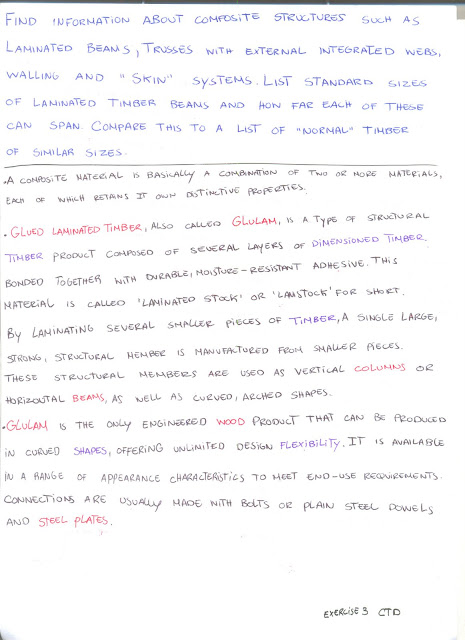 FIND INFORMATION ABOUT COMPOSITE STRUCTURES SUCH AS
LAMINATED BEAMS, TRUSSES WITH EXTERNAL INTEGRATED WEBS,
WALLING AND "SKIN" SYSTEMS. LIST STANDARD SIZES
OF LAMINATED TIMBER BEAMS AND HOW FAR EACH OF THESE
CAN SPAN. COMPARE THIS TO A LIST OF "NORMAL" TIMBER
OF SIMILAR SIZES.
·A COMPOSITE MATERIAL IS BASICALLY A COMBINATION OF TWO OR MORE MATERIALS,
EACH OF WHICH RETAINS IT OWN DISTINCTIVE PROPERTIES.
·GLUED LAMINATED TIMBER, ALSO CALLED GLULAM, IS A TYPE OF STRUCTURAL
TIMBER PRODUCT COMPOSED OF SEVERAL LAYERS OF DIMENSIONED TIMBER.
BONDED TOGETHER WITH DURABLE, MOISTURE-RESISTANT ADHESIVE. THIS
MATERIAL IS CALLED 'LAMINATED STOCK' OR 'LAMSTOCK' FOR SHORT.
BY LAMINATING SEVERAL SMALLER PIECES OF TIMBER, A SINGLE LARGE,
STRONG, STRUCTURAL MEMBER IS MANUFACTURED FROM SMALLER PIECES.
THESE STRUCTURAL MEMBERS ARE USED AS VERTICAL COLUMNS OR
HORIZONTAL BEAMS, AS WELL AS CURVED, ARCHED SHAPES.
·GLULAM IS THE ONLY ENGINEERED WOOD PRODUCT THAT CAN BE PRODUCED
IN CURVED SHAPES, OFFERING UNLIMITED DESIGN FLEXIBILITY. IT IS AVAILABLE
IN A RANGE OF APPEARANCE CHARACTERISTICS TO MEET END-USE REQUIREMENTS.
CONNECTIONS ARE USUALLY MADE WITH BOLTS OR PLAIN STEEL DOWELS
AND STEEL PLATES.
EXERCISE 3 CTD